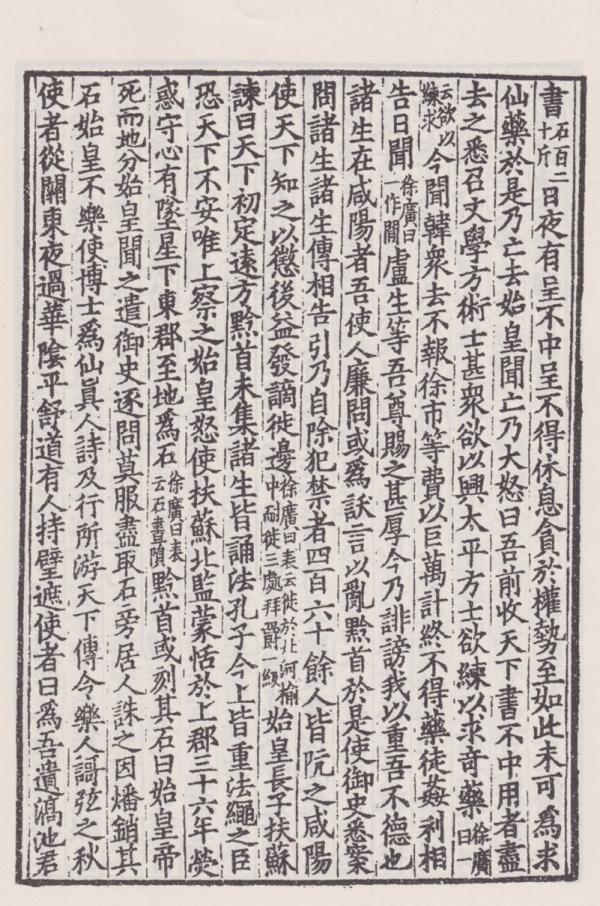 書石百二十斤日夜有呈不中呈不得休息貪於權勢至如此未可爲求
仙藥於是乃亡去始皇聞亡乃大怒曰吾前收天下書不中用者盡
去之悉召文學方術士甚衆欲以興太平方士欲練以求奇藥徐廣曰一
云欲以練求今聞韓衆去不報徐市等費以巨萬計終不得藥徒姦利相
告日聞徐廣曰一作閒盧生等吾尊賜之甚厚今乃誹謗我以重吾不德也
諸生在咸陽者吾使人廉問或爲訞言以亂黔首於是使御史悉案
問諸生諸生傳相告引乃自除犯禁者四百六十餘人皆阬之咸陽
使天下知之以懲後益發謫徙邊徐廣曰表云徙於北河榆中耐徙三處拜爵一級始皇長子扶蘇
諫曰天下初定遠方黔首未集諸生皆誦法孔子今上皆重法繩之臣
恐天下不安唯上察之始皇怒使扶蘇北監蒙恬於上郡三十六年熒
惑守心有墜星下東郡至地爲石徐廣曰表云石晝隕黔首或刻其石曰始皇帝
死而地分始皇聞之遣御史逐問莫服盡取石旁居人誅之因燔銷其
石始皇不樂使博士爲仙眞人詩及行所游天下傳令樂人謌弦之秋
使者從關東夜過華陰平舒道有人持璧遮使者曰爲吾遺滈池君